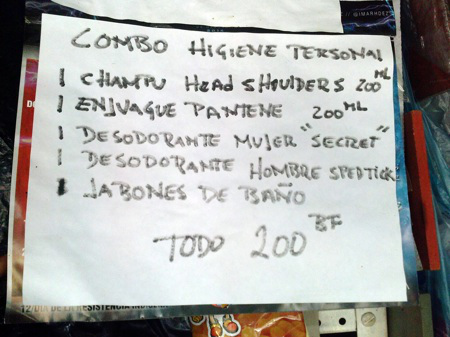 @IMARHDEZ
COMBO HIGIENE PERSONAL
1 CHAMPU HEAD SHOULDERS 200 ML
1 ENJUAGUE PANTENE 200 ML
1 DESODORANTE MUJER "SECRET"
1 DESODORANTE HOMBRE SPEDTICK
1 JABONES DE BAÑO
TODO 200 BF
12 DIA DE LA RESISTENCIA